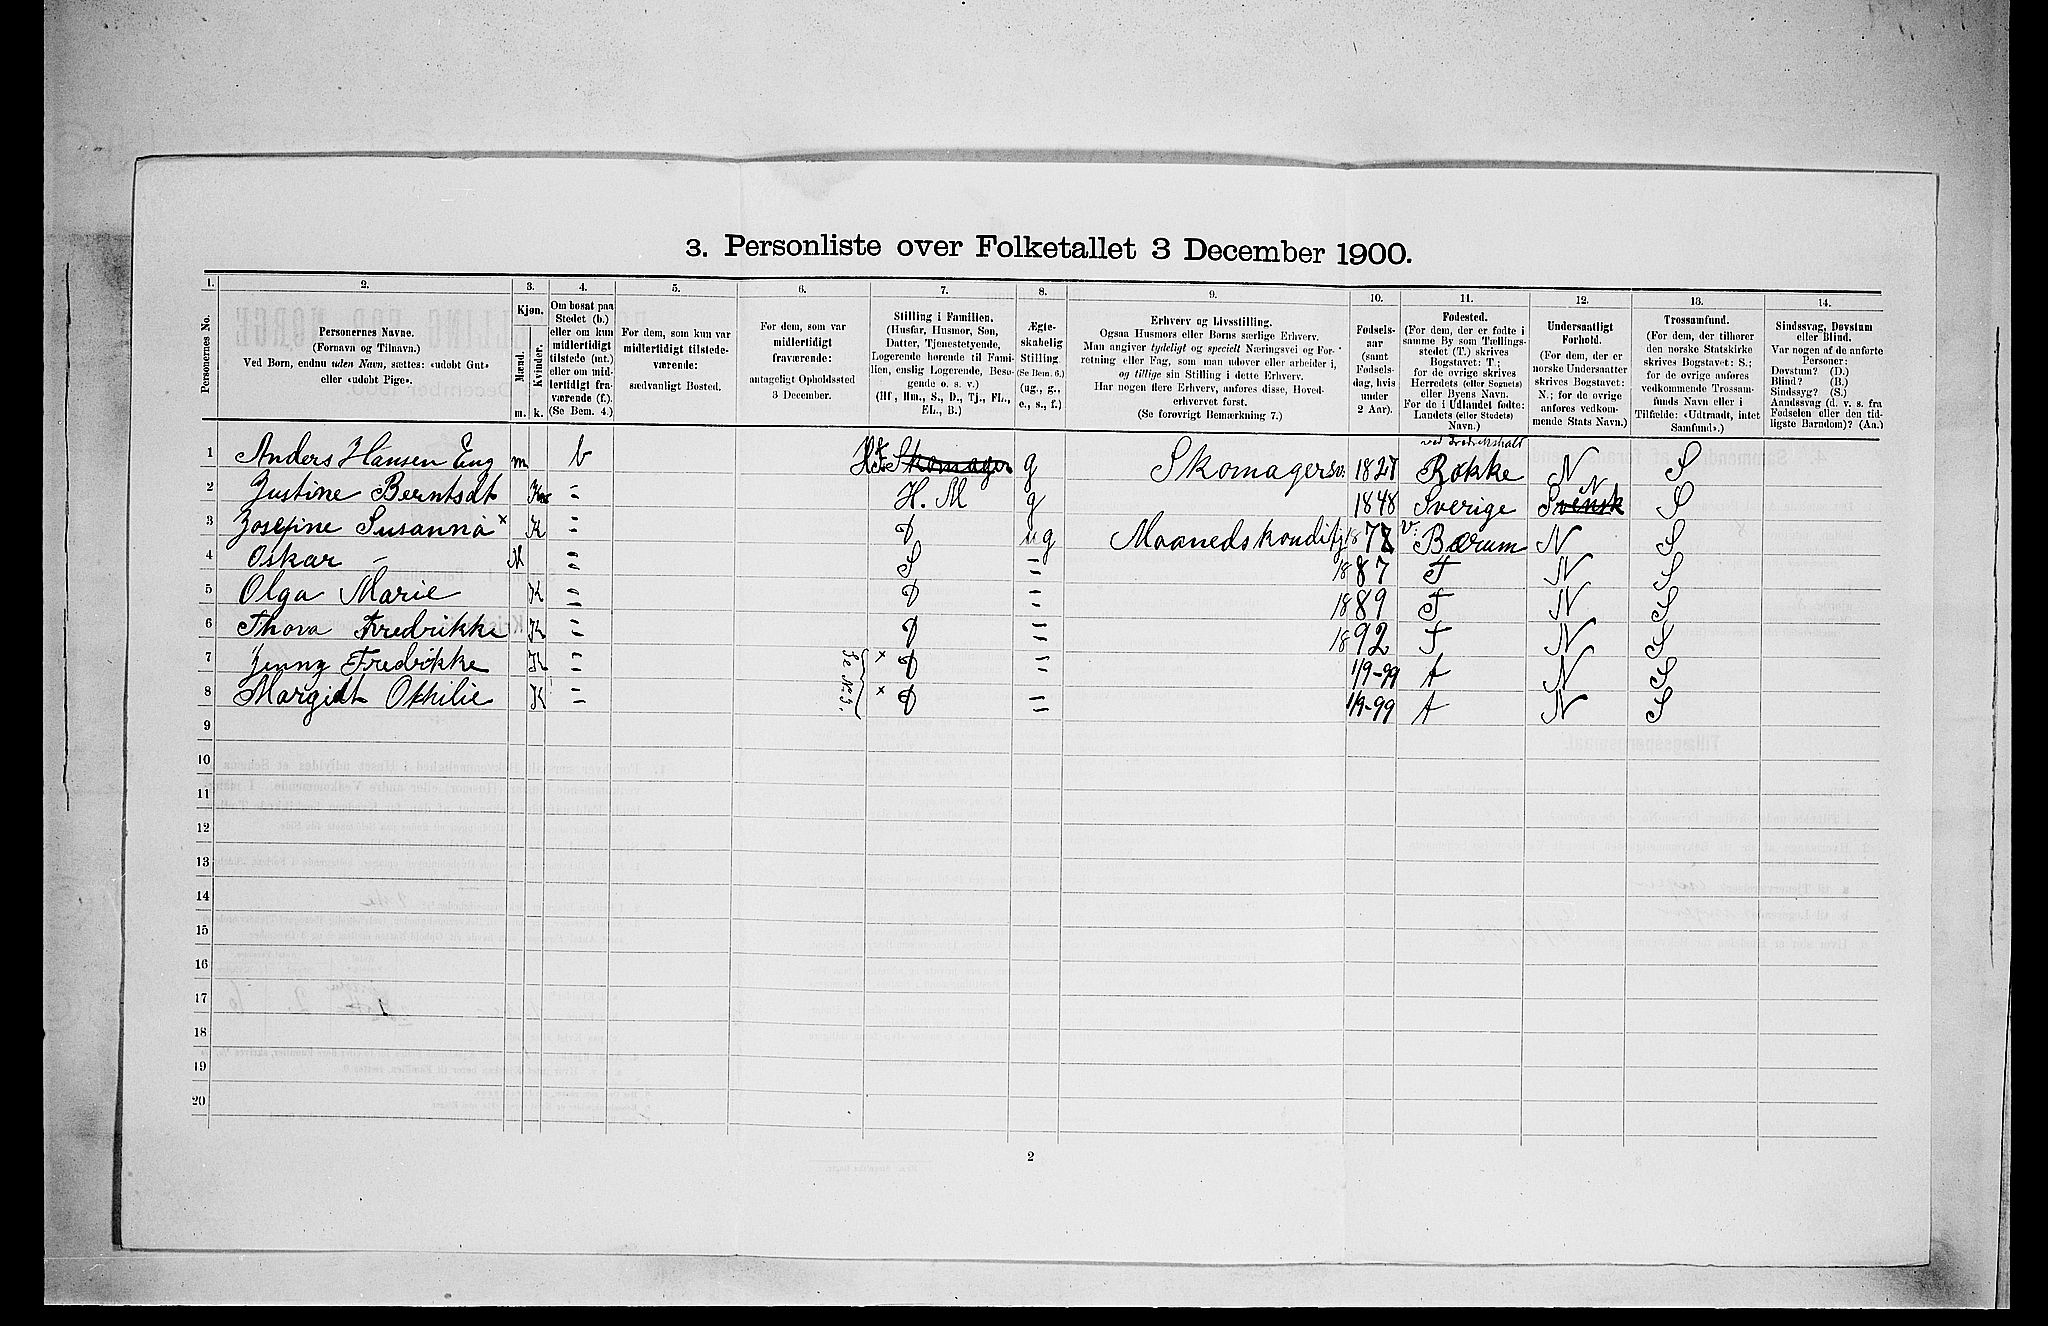 3. Personliste over Folketallet 3 December 1900.
1. 2. 3. 4. 5. 6. 7. 8. 9. 10. 11. 12. 13. 14.
Personernes No.
Personernes Navne.
(Fornavn og Tilnavn.)
Ved Børn, endnu uden Navn, sættes: «udøbt Gut»
eller «udøbt Pige».
Kjøn.
Mænd. Kvinder.
m. k.
Om bosat paa
Stedet (b.)
eller om kun
midlertidigt
tilstede (mt.)
eller om mid-
lertidigt fra-
værende (f.).
(Se Bem. 4.)
For dem, som kun var
midlertidigt tilstede-
værende:
sædvanligt Bosted.
For dem, som var
midlertidigt
fraværende:
antageligt Opholdssted
3 December.
Stilling i Familien.
(Husfar, Husmor, Søn,
Datter, Tjenestetyende,
Logerende hørende til Fami-
lien, enslig Logerende, Besø-
gende o. s. v.)
(Hf., Hm., S., D., Tj., FL.,
EL., B.)
Ægte-
skabelig
Stilling.
(Se Bem. 6.)
(ug., g.,
e., s., f.)
Erhverv og Livsstilling.
Ogsaa Husmors eller Børns særlige Erhverv.
Man angiver tydeligt og specielt Næringsvei og For-
retning eller Fag, som man udøver eller arbeider i,
og tillige sin Stilling i dette Erhverv.
Har nogen flere Erhverv, anføres disse, Hoved-
erhvervet først.
(Se forøvrigt Bemærkning 7.)
Fødsels-
aar
(samt
Fødsels-
dag, hvis
under
2 Aar).
Fødested.
(For dem, der er fødte i
samme By som Tællings-
stedet (T.) skrives
Bogstavet: T.;
for de øvrige skrives
Herredets (eller Sognets)
eller Byens Navn.
For de i Udlandet fødte:
Landets (eller Stedets)
Navn.)
Undersaatligt
Forhold.
(For dem, der er
norske Undersaatter
skrives Bogstavet:
N.; for de øvrige
anføres vedkom-
mende Stats Navn.)
Trossamfund.
(For dem, der tilhører
den norske Statskirke
skrives Bogstavet: S.;
for de øvrige anføres
vedkommende Trossam-
funds Navn eller i
Tilfælde: «Udtraadt, intet
Samfund».)
Sindssvag, Døvstum
eller Blind.
Var nogen af de anførte
Personer:
Døvstum? (D.)
Blind? (B.)
Sindssyg? (S.)
Aandssvag (d. v. s. fra
Fødselen eller den tid-
ligste Barndom)? (Aa.)
ved Fredrikshald
1 Anders Hansen Eng m b Hf. Skomager g Skomagersv. 1827 Rokke N S
2 Justine Berntsdt K " H. M g 1848 Sverige Svensk N S
3 Josefine Susanna x K " D ug Maanedskondi tj 1872 V. Bærum N S
4 Oskar — M " S " 1887 T N S
5 Olga Marie K " D " 1889 T N S
6 Thora Fredrikke K " D " 1892 T N S
7 Jenny Fredrikke K " Se No. 3. x D " 1/9-99 A N S
8 Margidt Othilie K " x D " 1/9-99 A N S
9
10
11
12
13
14
15
16
17
18
19
20
2